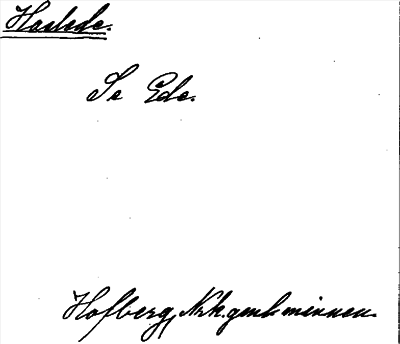 Haslede.
Se Ede.
Hofberg, minnen.